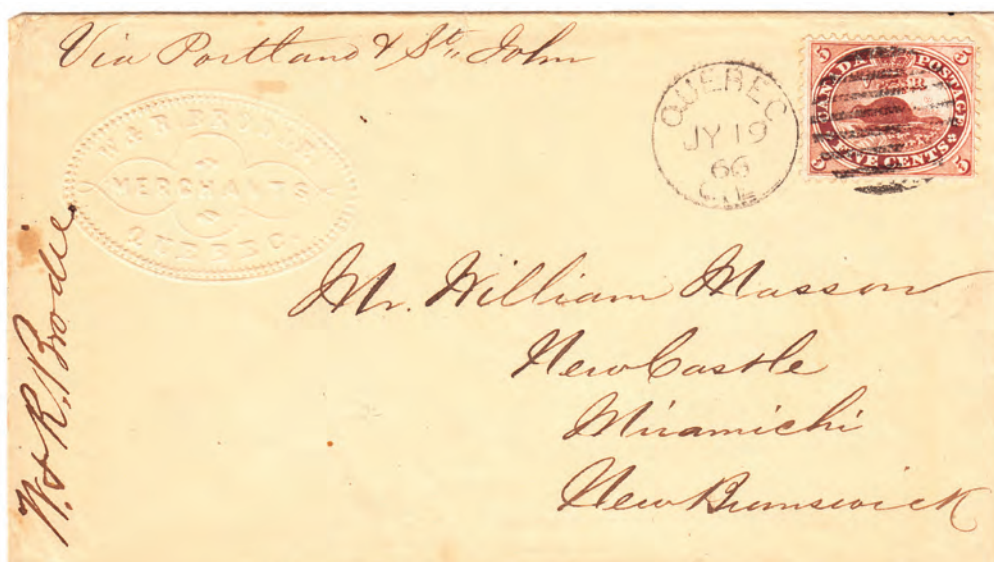 Via Portland & St,, John
W & R BRODIE
MERCHANTS
QUEBEC
QUEBEC
JY 19
66
C.E.
5 5
CANADA POSTAGE
FIVE CENTS
5 5
Mr. William Masson
NewCastle
Miramichi
New Brunswick
W. & R. Brodie